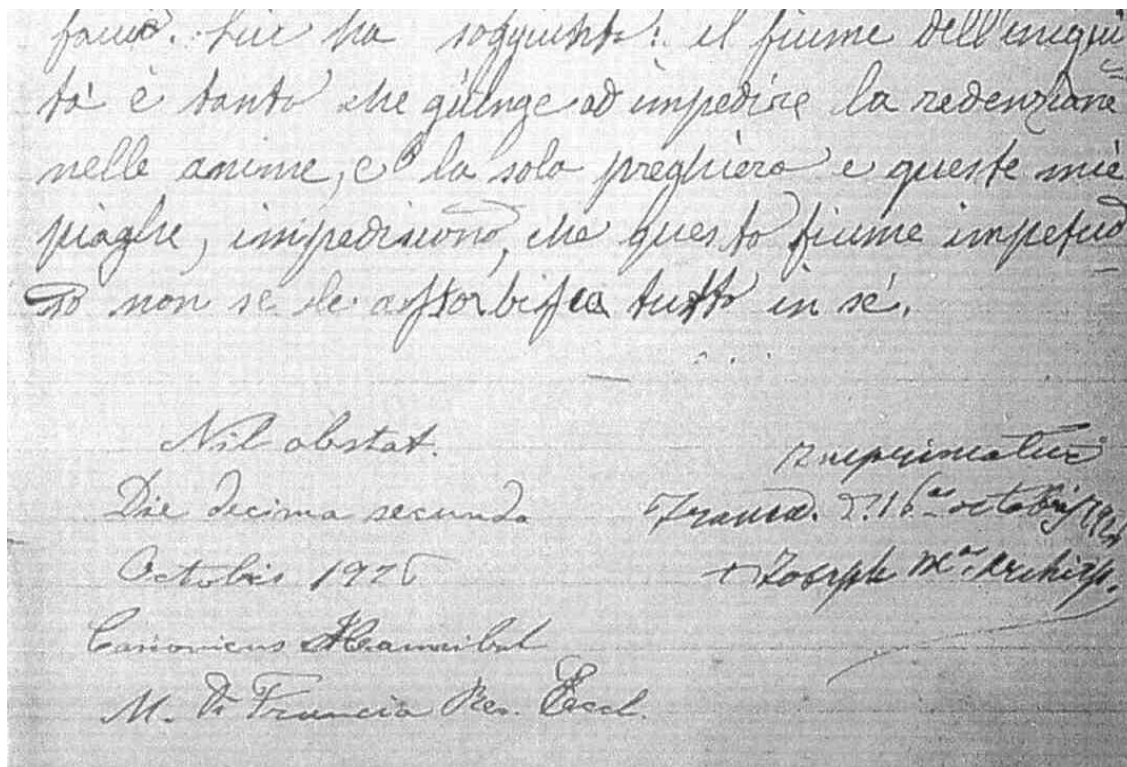 ha soggiunto: il fiume dell'iniqui
tà è tanto che giunge ad impedire la redenzione
nelle anime, e la sola preghiera e queste mie
piaghe, impediscono, che questo fiume impetuo
so non se le assorbisca tutto in sé.
Nil obstat.
Die decima secunda
Octobris 1926
Canonicus Hannibal
M. Di Francia Rev. Eccl.
Imprimatur
octobris
+ Joseph M. Archiep.